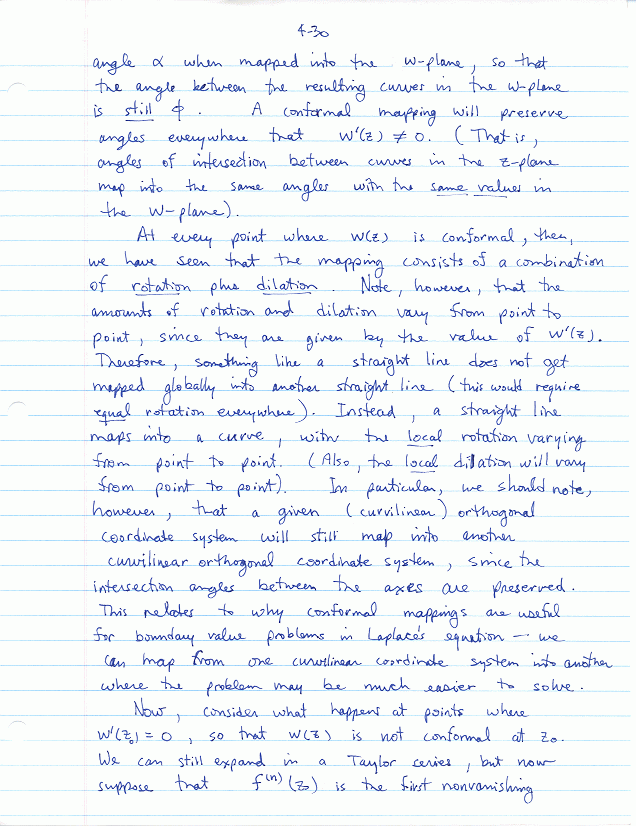 4-30
angle α when mapped into the w-plane, so that
the angle between the resulting curves in the w-plane
is still ϕ. A conformal mapping will preserve
angles everywhere that w'(z) ≠ 0. (That is,
angles of intersection between curves in the z-plane
map into the same angles with the same values in
the w-plane).
At every point where w(z) is conformal, then,
we have seen that the mapping consists of a combination
of rotation plus dilation. Note, however, that the
amounts of rotation and dilation vary from point to
point, since they are given by the value of w'(z).
Therefore, something like a straight line does not get
mapped globally into another straight line (this would require
equal rotation everywhere). Instead, a straight line
maps into a curve, with the local rotation varying
from point to point. (Also, the local dilation will vary
from point to point). In particular, we should note,
however, that a given (curvilinear) orthogonal
coordinate system will still map into another
curvilinear orthogonal coordinate system, since the
intersection angles between the axes are preserved.
This relates to why conformal mappings are useful
for boundary value problems in Laplace's equation — we
can map from one curvilinear coordinate system into another
where the problem may be much easier to solve.
Now, consider what happens at points where
w'(z₀) = 0, so that w(z) is not conformal at z₀.
We can still expand in a Taylor series, but now
suppose that f⁽ⁿ⁾(z₀) is the first nonvanishing